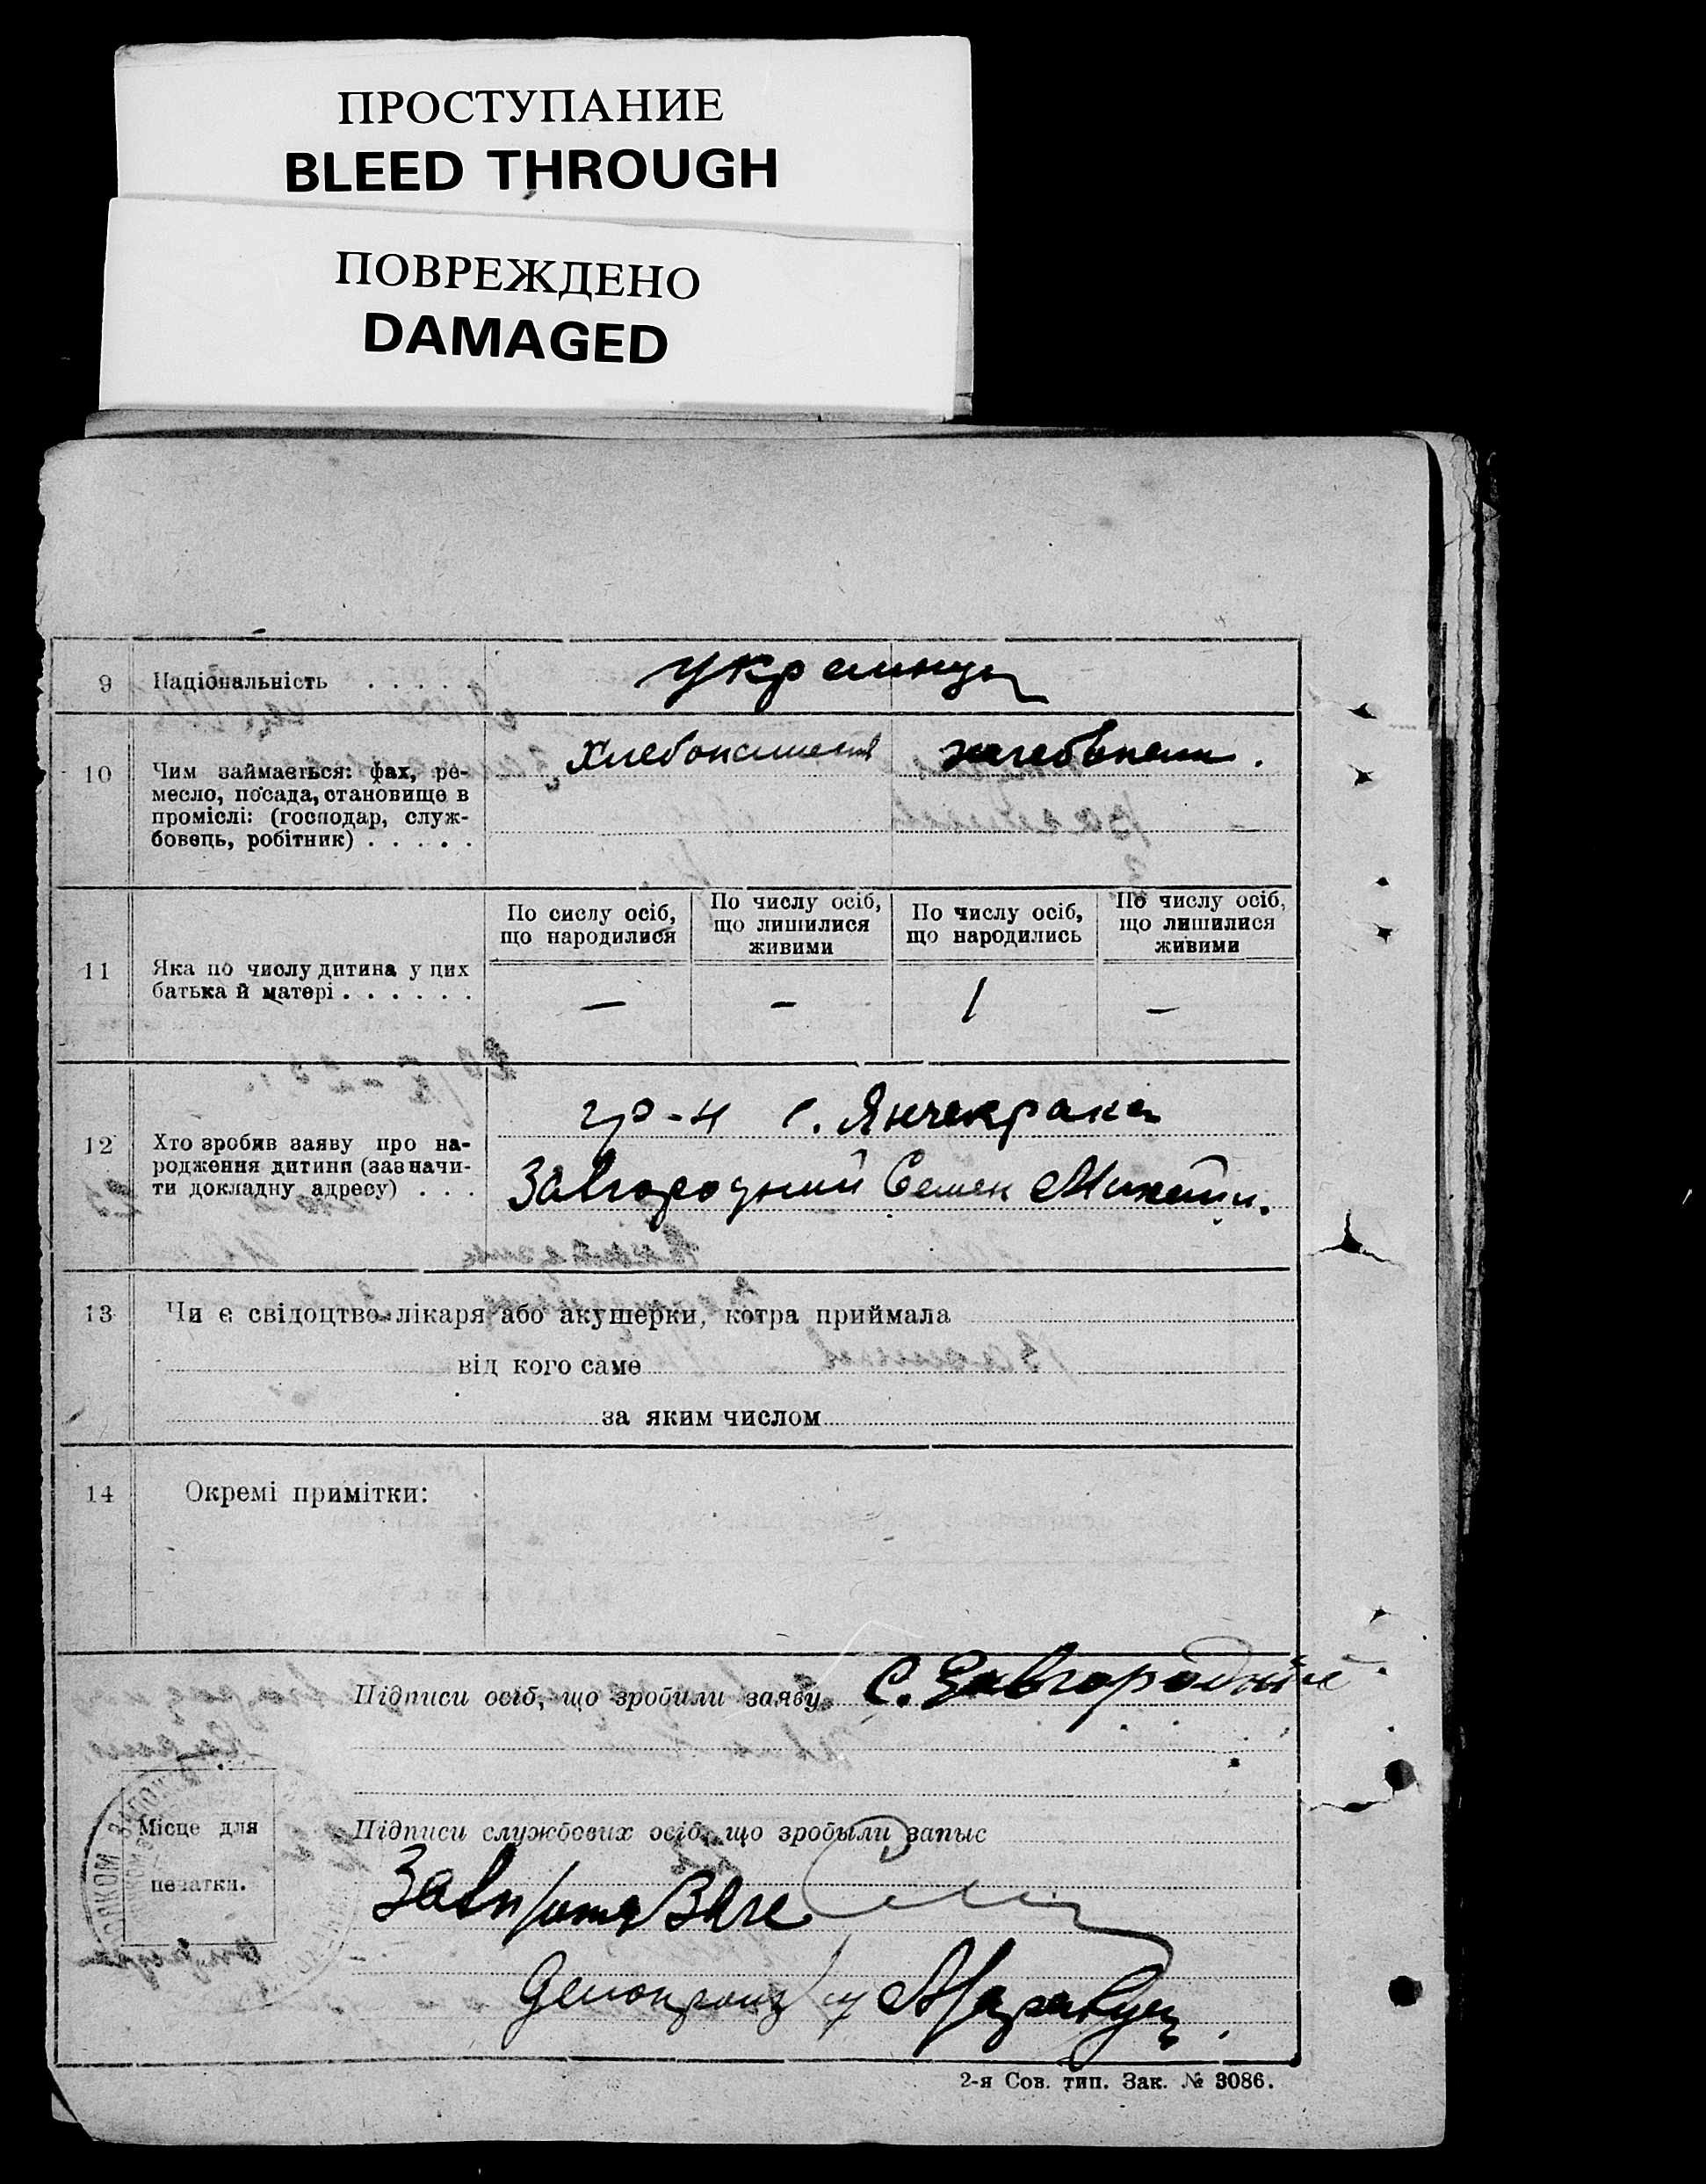 ПРОСТУПАНИЕ
BLEED THROUGH
ПОВРЕЖДЕНО
DAMAGED
9 Національність . . . . . украинцы
10 Чим займається: фах, ре-
месло, посада, становище в
проміслі: (господар, служ-
бовець, робітник) . . . . .
Хлебопашец
11 Яка по числу дитина у цих
батька й матері . . . . . .
По сислу осіб,
що народилися
По числу осіб,
що лишилися
живими
По числу осіб,
що народились
По числу осіб,
що лишилися
живими
— — 1 —
12 Хто зробив заяву про на-
родження дитини (зазначи-
ти докладну адресу) . . .
гр-н с. Янчекрака
Завгородний Семен
13 Чи є свідоцтво лікаря або акушерки, котра приймала
від кого саме
за яким числом
14 Окремі примітки:
Підписи осіб, що зробили заяву С. Завгородний
Місце для
печатки.
Підписи службових осіб, що зробыли запыс
2-я Сов. тип. Зак. № 3086.